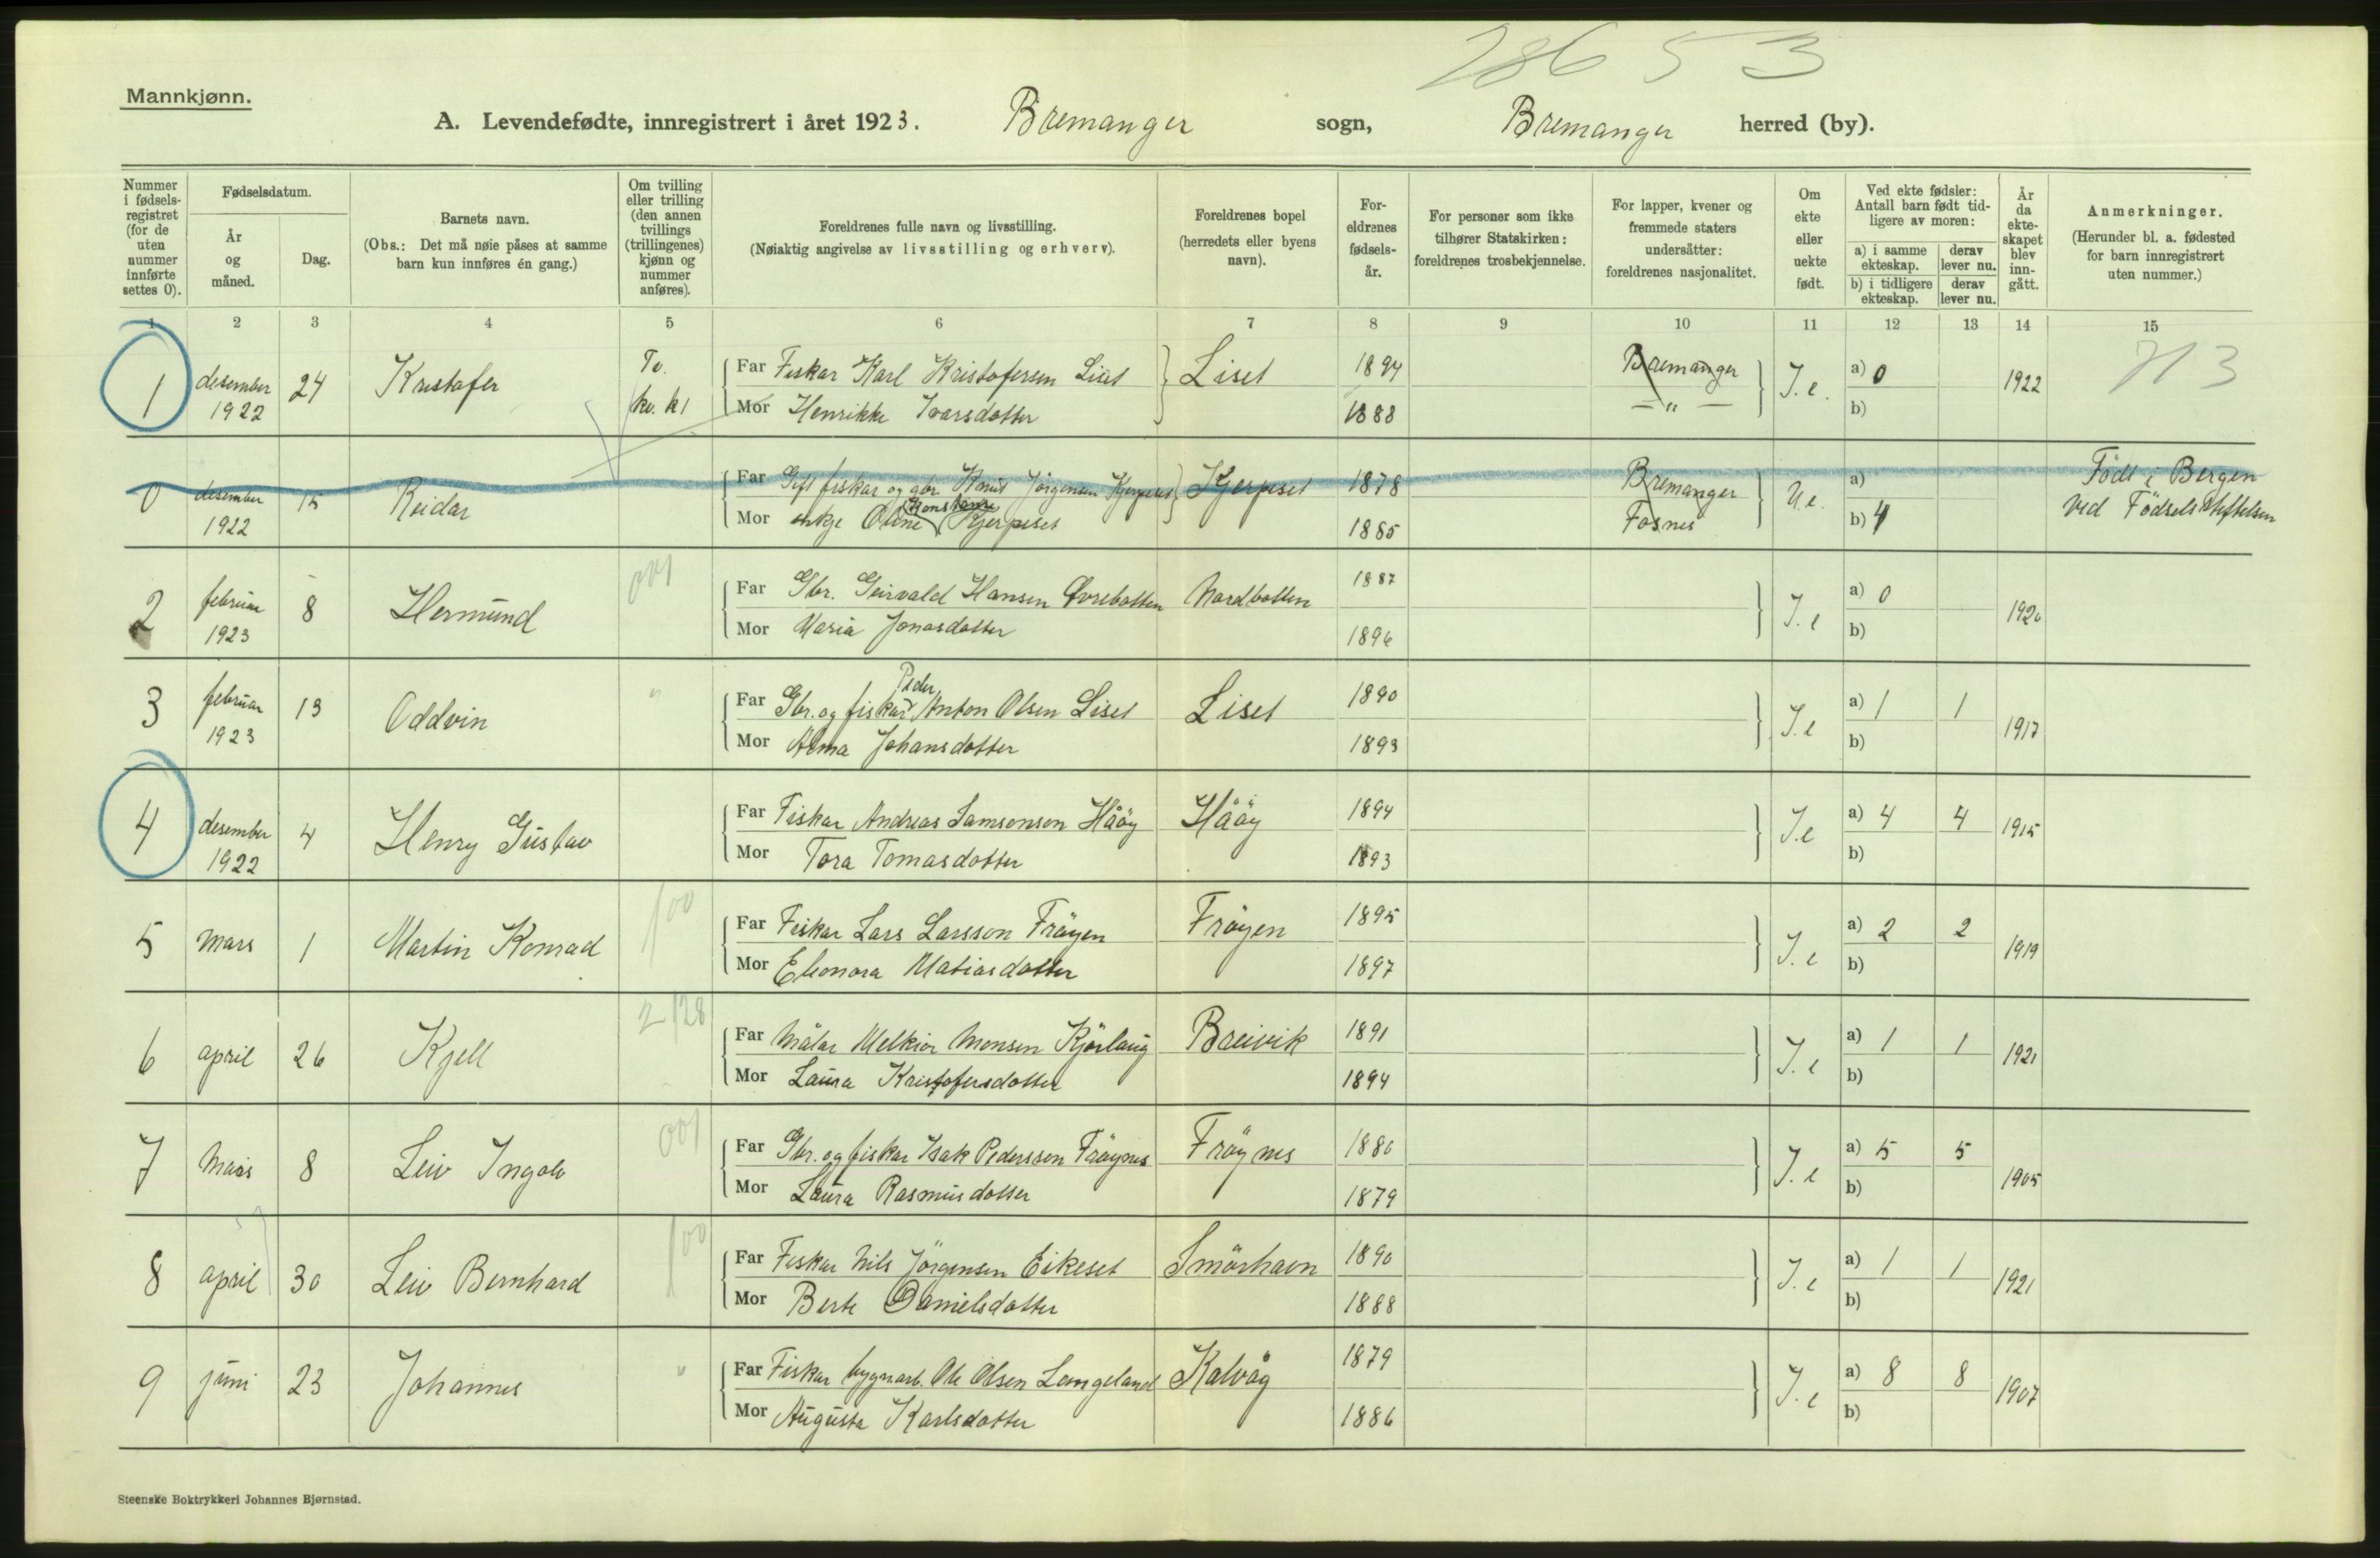 28653
Mannkjønn.
A. Levendefødte, innregistrert i året 1923. Bremanger sogn, Bremanger herred (by).
Nummer i fødsels-registret (for de uten nummer innførte settes 0).
Fødselsdatum.
År og måned.
Dag.
Barnets navn.
(Obs.: Det må nøie påses at samme barn kun innføres én gang.)
Om tvilling eller trilling (den annen tvillings (trillingenes) kjønn og nummer anføres).
Foreldrenes fulle navn og livsstilling.
(Nøiaktig angivelse av livsstilling og erhverv).
Foreldrenes bopel (herredets eller byens navn).
For-eldrenes fødsels-år.
For personer som ikke tilhører Statskirken: foreldrenes trosbekjennelse.
For lapper, kvener og fremmede staters undersåtter: foreldrenes nasjonalitet.
Om ekte eller uekte født.
Ved ekte fødsler: Antall barn født tid-ligere av moren:
a) i samme ekteskap. derav lever nu.
b) i tidligere ekteskap. derav lever nu.
År da ekte-skapet blev inn-gått.
Anmerkninger.
(Herunder bl. a. fødested for barn innregistrert uten nummer.)
1 2 3 4 5 6 7 8 9 10 11 12 13 14 15
1 desember 1922 24 Kristofer Tv. kv. k1
Far Fiskar Karl Kristofersen Liset Liset 1894 Bremanger I.e. a) 0 1922
Mor Henrikke Ivarsdotter 1888 — " — b)
0 desember 1922 15 Reidar
Far Gift fiskar og gbr. Knut Jörgensen Kjerpeset Kjerpeset 1878 Bremanger U.e. a) Födt i Bergen
Mor enkje Oline Konstanse Kjerpeset 1885 Fosnes b) 4 ved Födselsstiftelsen
2 februar 1923 8 Hermund 001
Far Gbr. Geirvald Hansen Øvrebotten Nordbotten 1887 I.e a) 0 1920
Mor Maria Jonasdotter 1896 b)
3 februar 1923 13 Oddvin "
Far Gbr. og fiskar Peder Anton Olsen Liset Liset 1890 I.e a) 1 1 1917
Mor Alma Johansdotter 1893 b)
4 desember 1922 4 Henry Gustav
Far Fiskar Andreas Samsonson Håöy Håöy 1894 I.e a) 4 4 1915
Mor Tora Tomasdotter 1893 b)
5 Mars 1 Martin Konrad 100
Far Fiskar Lars Larsson Fröyen Fröyen 1895 I.e a) 2 2 1919
Mor Eleonora Matiasdotter 1897 b)
6 april 26 Kjell 2 128
Far Målar Melkior Monsen Kjörlaug Breivik 1891 I.e a) 1 1 1921
Mor Laura Kristofersdotter 1894 b)
7 Mars 8 Leiv Ingolv 001
Far Gbr. og fiskar Isak Pedersson Fröynes Fröynes 1880 I.e a) 5 5 1905
Mor Laura Rasmusdotter 1879 b)
8 april 30 Leiv Bernhard 100
Far Fiskar Nils Jörgensen Eikeset Smörhavn 1890 I.e a) 1 1 1921
Mor Berte Danielsdotter 1888 b)
9 juni 23 Johannes "
Far Fiskar bygnarb. Ole Olsen Langeland Kalvåg 1879 I.e a) 8 8 1907
Mor Augusta Karlsdotter 1886 b)
Steenske Boktrykkeri Johannes Bjørnstad.